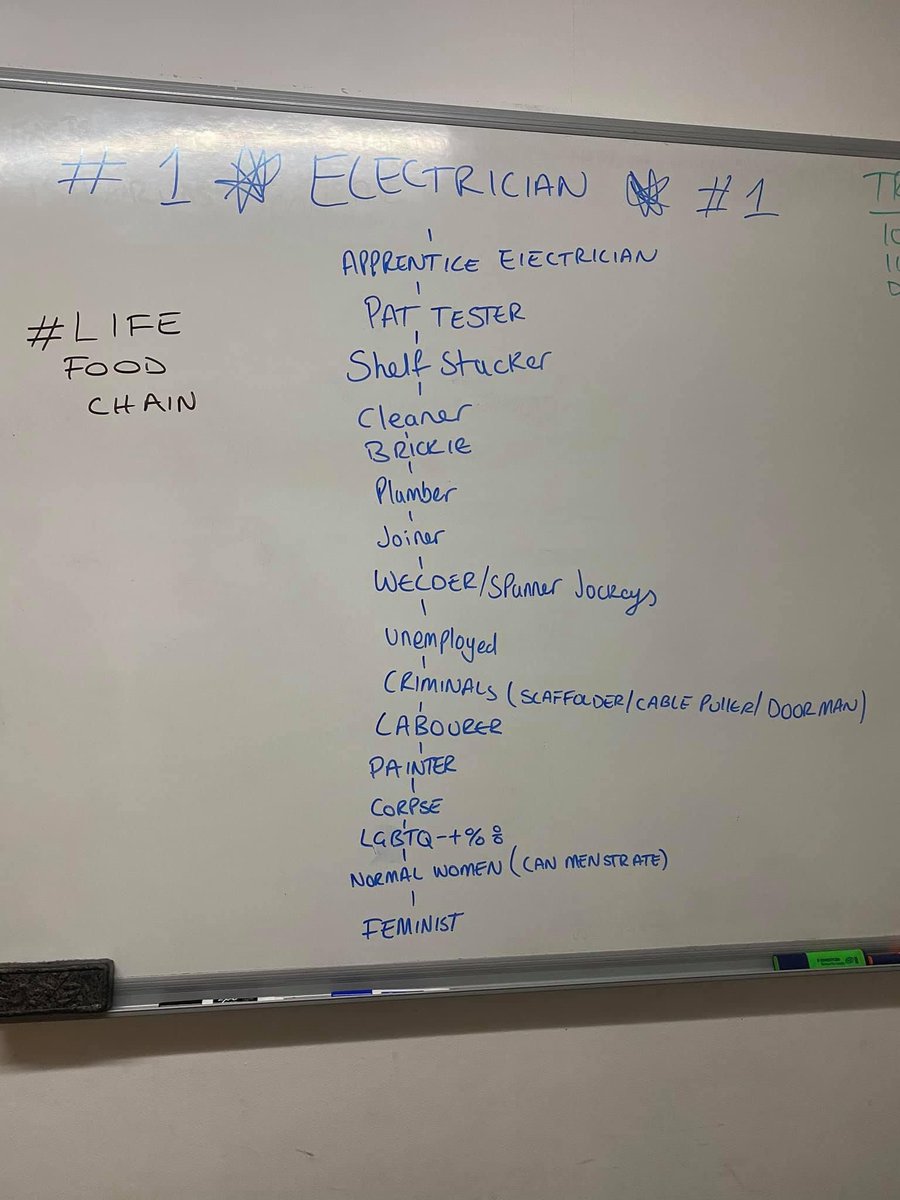 # 1 ELECTRICIAN #1
APPRENTICE ElECTRICIAN
PAT TESTER
Shelf Stacker
Cleaner
BRICKIE
Plumber
Joiner
WELDER/Spanner Jockeys
unemployed
CRIMINALS (SCAFFOLDER/CABLE PUllER/DOORMAN)
LABOURER
PAINTER
CORPSE
LGBTQ-+%%
NORMAL WOMEN (CAN MENSTRATE)
FEMINIST
#LIFE
FOOD
CHAIN